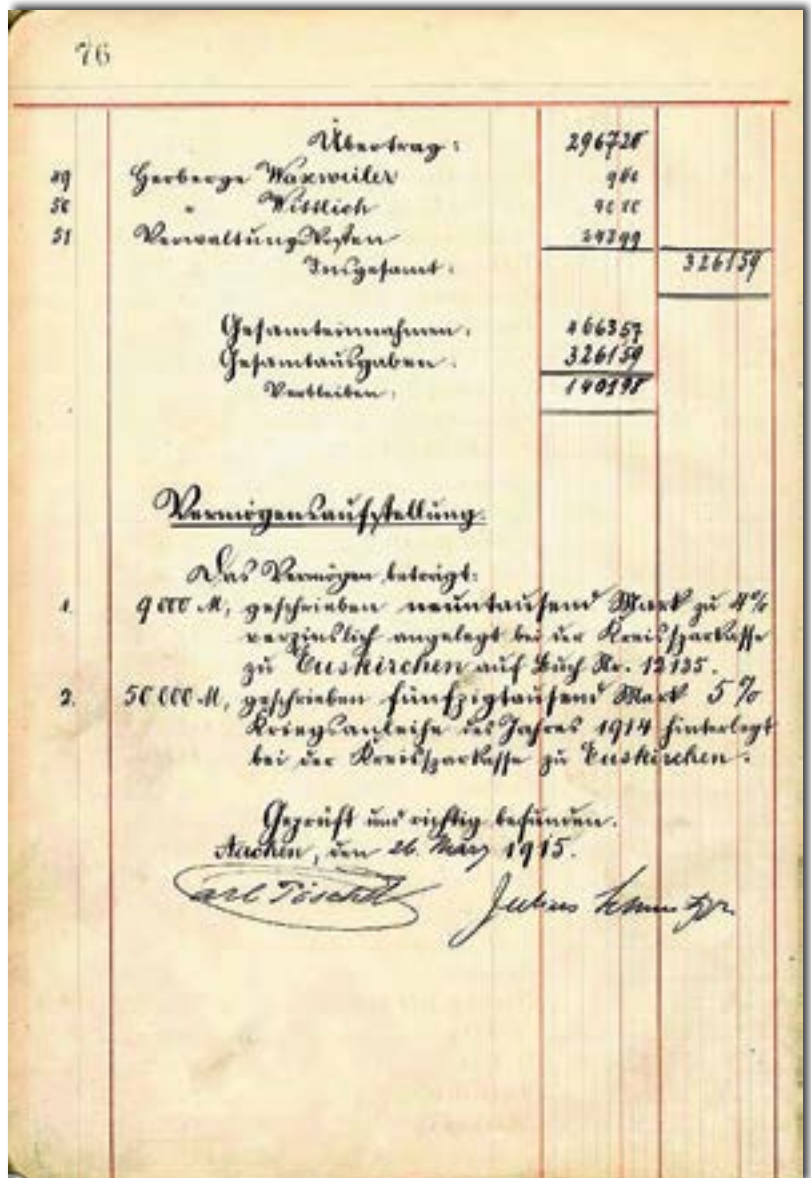 76
Übertrag: 296720
49 Herberge Waxweiler
50 " Wittlich
51 Verwaltungskosten
Insgesamt: 326159
Gesamteinnahmen: 466357
Gesamtausgaben: 326159
Verbleiben: 140198
Vermögensaufstellung.
Das Vermögen beträgt:
1. 9000 M, geschrieben neuntausend Mark zu 4%
verzinslich angelegt bei der Kreissparkasse
zu Euskirchen auf Buch Nr. 12135.
2. 50000 M, geschrieben fünfzigtausend Mark 5%
Kriegsanleihe des Jahres 1914 hinterlegt
bei der Kreissparkasse zu Euskirchen.
Geprüft und richtig befunden.
Aachen, den 26. März 1915.
Carl Julius